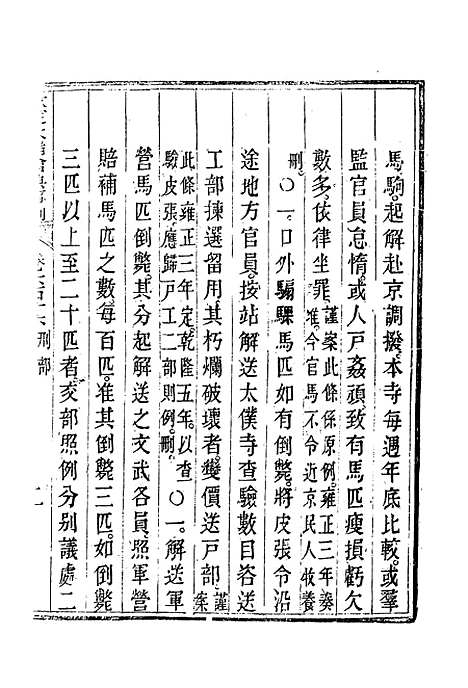 馬駒。起解赴京調撥。本寺每遇年底比較。或羣
監官員怠惰。或人戶姦頑致有馬匹瘦損虧欠
數多。依律坐罪。謹案此條係原例。雍正三年奏准。今官馬不令近京民人收養
刪。○一。口外騸騍馬匹如有倒斃。將皮張令沿
途地方官員。按站解送太僕寺查驗數目咨送
工部揀選留用其朽爛破壞者。變價送戶部。謹案
此條雍正三年定。乾隆五年。以查驗皮張。應歸戶工二部則例。刪。○一。解送軍
營馬匹倒斃。其分起解送之文武各員。照軍營
賠補馬匹之數。每百匹。准其倒斃三匹。如倒斃
三匹以上至二十匹者。交部照例分別議處二
刑部